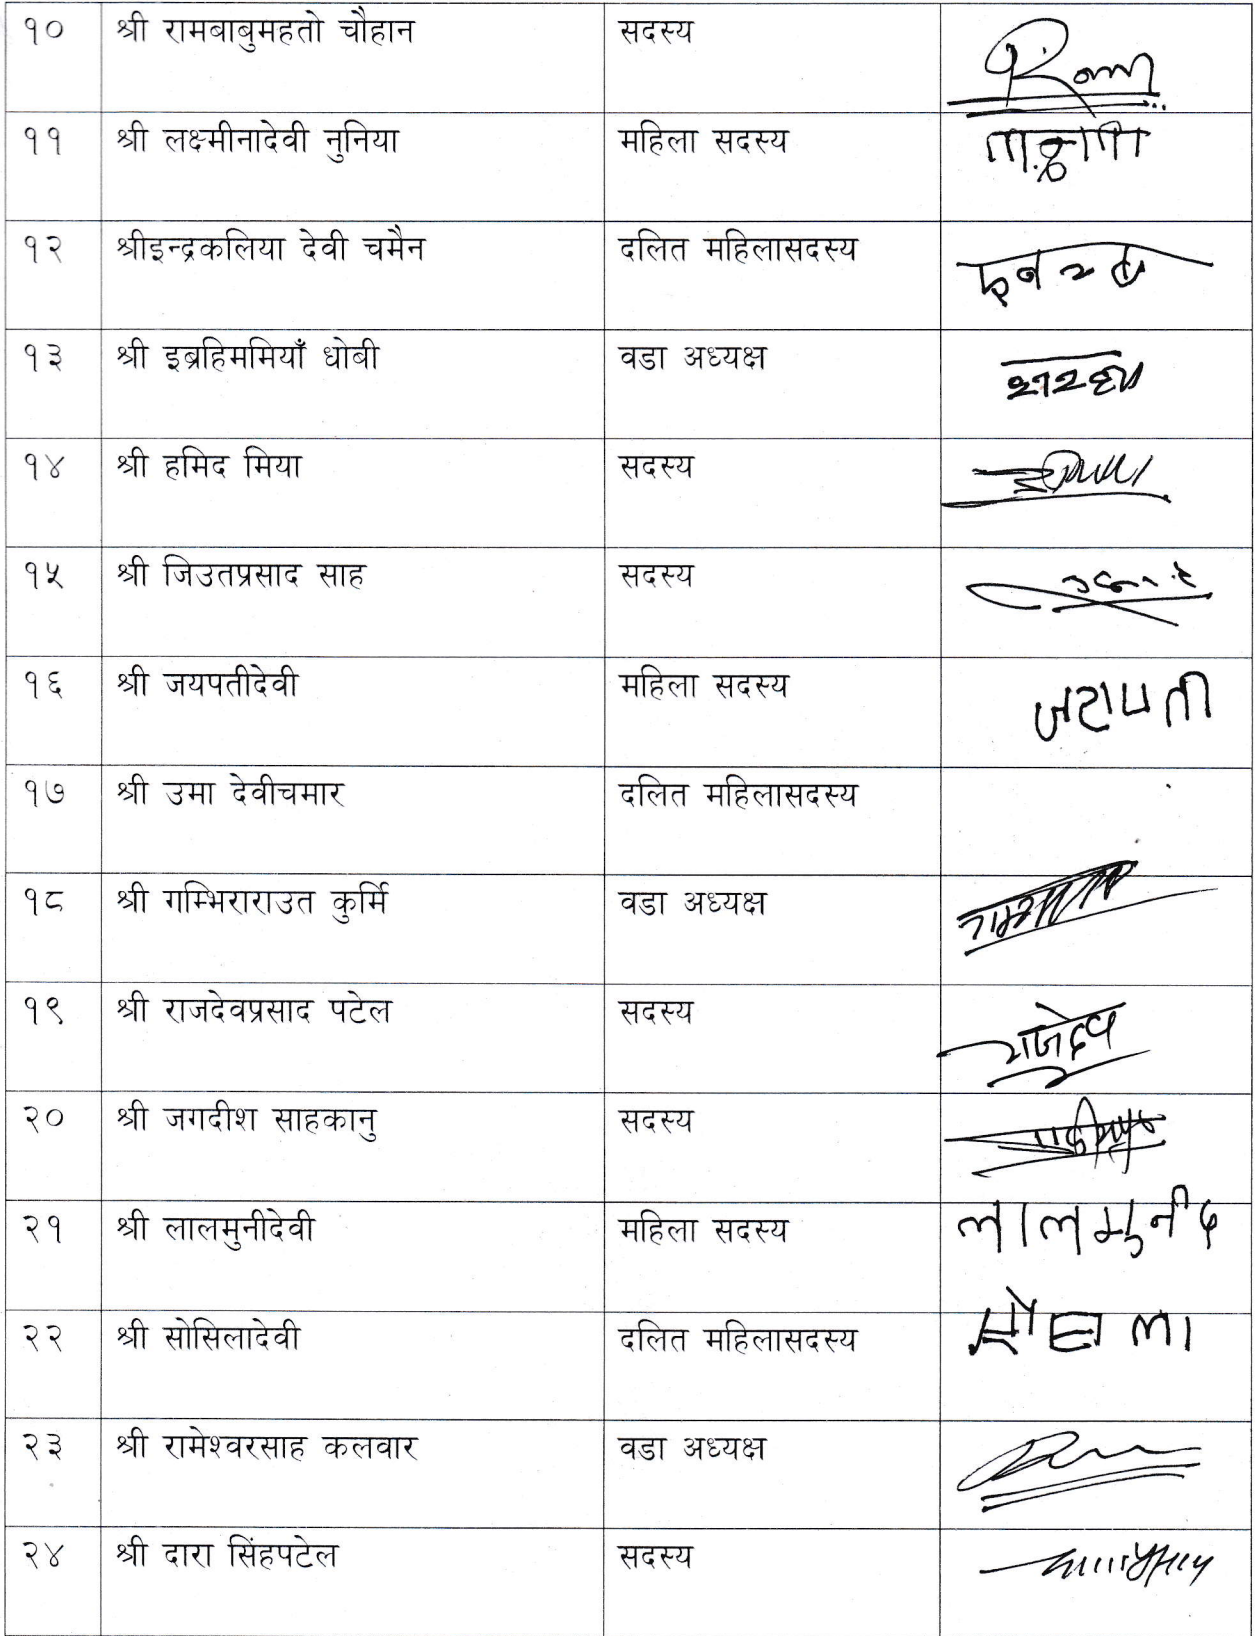 १० श्री रामबाबुमहतो चौहान सदस्य Ram
११ श्री लक्ष्मीनादेवी नुनिया महिला सदस्य
१२ श्रीइन्द्रकलिया देवी चमैन दलित महिलासदस्य
१३ श्री इब्रहिममियाँ धोबी वडा अध्यक्ष
१४ श्री हमिद मिया सदस्य
१५ श्री जिउतप्रसाद साह सदस्य
१६ श्री जयपतीदेवी महिला सदस्य जयपती
१७ श्री उमा देवीचमार दलित महिलासदस्य
१८ श्री गम्भिराराउत कुर्मि वडा अध्यक्ष
१९ श्री राजदेवप्रसाद पटेल सदस्य राजदेव
२० श्री जगदीश साहकानु सदस्य
२१ श्री लालमुनीदेवी महिला सदस्य लालमुनी द
२२ श्री सोसिलादेवी दलित महिलासदस्य
२३ श्री रामेश्वरसाह कलवार वडा अध्यक्ष
२४ श्री दारा सिंहपटेल सदस्य